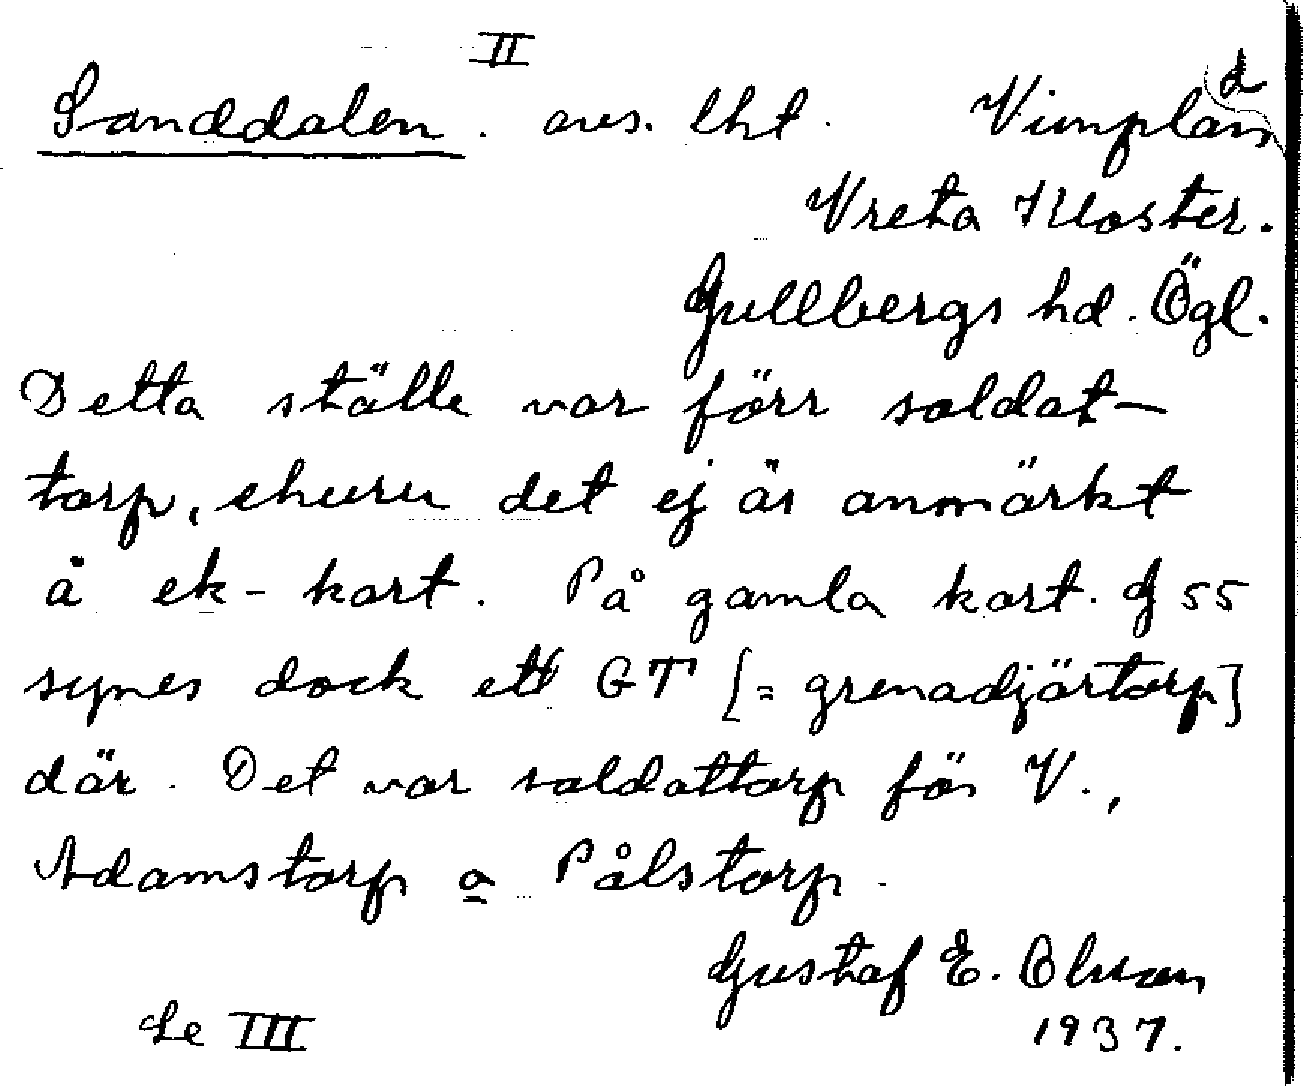 II
Sanddalen. avs. lht. Vimplan
d
Vreta Kloster.
Gullbergs hd. Ögl.
Detta ställe var förr soldat-
torp, ehuru det ej är anmärkt
å ek-kart. På gamla kart. G 55
synes dock ett GT [= grenadjärtorp]
där. Det var soldattorp för V.,
Adamstorp o Pålstorp.
Gustaf E. Olsson
Le III 1937.